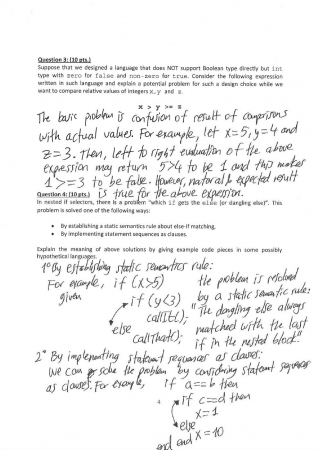 Question 3: (10 pts.)
Suppose that we designed a language that does NOT support Boolean type directly but int
type with zero for false and non-zero for true. Consider the following expression
written in such language and explain a potential problem for such a design choice while we
want to compare relative values of integers x, y and z.
x > y >= z
The basic problem is confusion of result of comparisons
with actual values. For example, let x=5, y=4 and
z=3. Then, left to right evaluation of the above
expression may return 5>4 to be 1 and this makes
1>=3 to be false. However, natural & expected result
is true for the above expression.
Question 4: (10 pts.)
In nested if selectors, there is a problem "which if gets the else (or dangling else)". This
problem is solved one of the following ways:
• By establishing a static semantics rule about else-if matching.
• By implementing statement sequences as clauses.
Explain the meaning of above solutions by giving example code pieces in some possibly
hypothetical languages.
1° By establishing static semantics rule:
For example, if (x>5) the problem is resolved
given if (y<3) by a static semantic rule:
callIt(); "The dangling else always
else matched with the last
callThat(); if in the nested block."
2° By implementing statement sequences as clauses:
We can solve the problem by considering statement sequences
as clauses. For example, if a==b then
4 if c==d then
x=1
else
x=10
end end